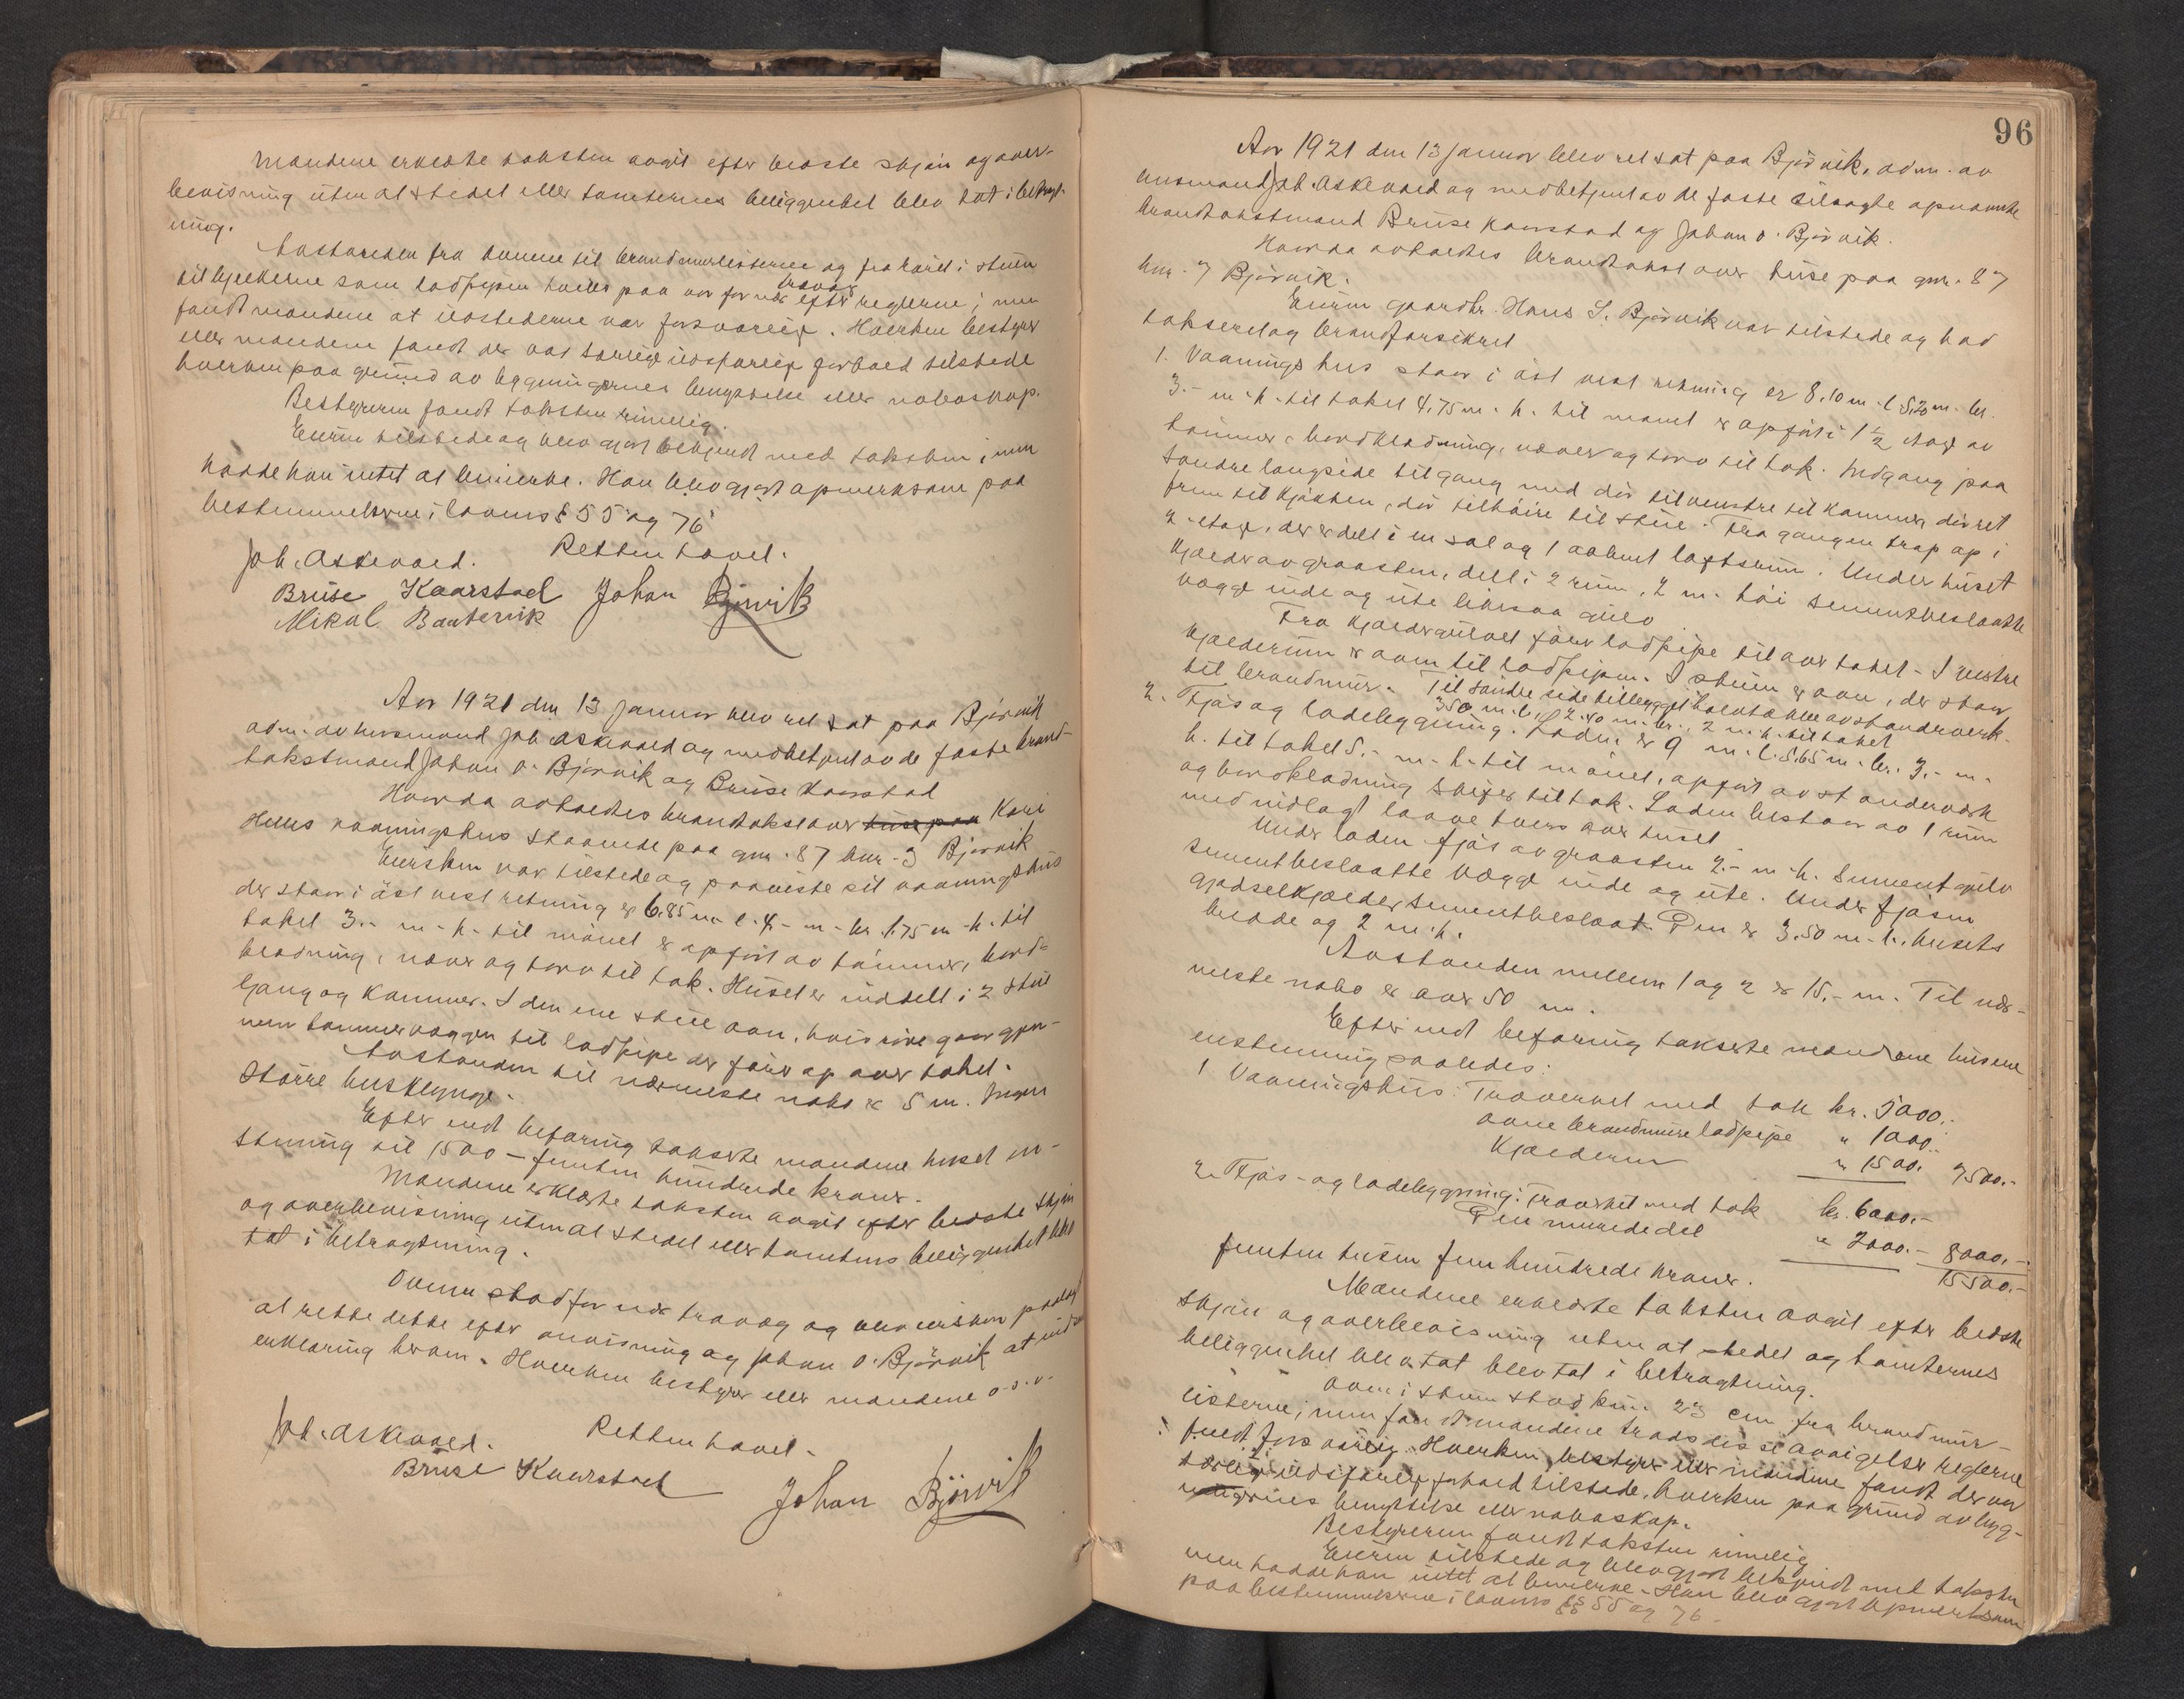 Mændene erklærte taksten avgit efter bedste skjøn og over-
bevisning uten at stedet eller tomternes beliggenhet blev tat i betragt-
ning.
Avstanden fra ovnene til brandmurlisterne og fra hæret i stuen
til bjelkerne som ladpipen hviler paa var for nær efter reglerne; men
fandt mændene at ildstederne var forsvarlige. Hverken bestyrer
eller mændene fandt der var særlige ildsfarlige forhold tilstede
hverken paa grund av bygningernes benyttelse eller naboskap.
Bestyreren fandt taksten rimelig.
Eieren tilstede og blev gjort bekjendt med taksten; men
hadde han intet at bemerke. Han blev gjort opmerksom paa
bestemmelserne i lovens § 55 og 76
Retten hævet.
Joh. Askevold.
Bruse Kaarstad Johan Bjørvik
Mikal Bautervik
Aar 1921 den 13 januar blev ret sat paa Bjørvik
adm. av lensmand Joh. Askevold og medbetjent av de faste brand-
takstmænd Johan O. Bjørvik og Bruse Kaarstad
Hvorda avholdtes brandtakst over huse paa Kari
Hellis vaaningshus staaende paa gnr. 87 bnr. 3 Bjørvik
Eiersken var tilstede og paaviste sit vaaningshus
der staar i øst vest retning er 6,85 m. l. 4,- m. br. 1,75 m. h. til
taket 3.- m. h. til mønet er opført av tømmer, bord-
klædning, næver og torv til tak. Huset er inddelt i 2 stue
gang og kammer. I den ene stue ovn, hvis røre gaar gjen-
nem tømmervæggen til ladpipe der fører op over taket.
Avstanden til nærmeste nabo er 5 m. Ingen
større husklynge.
Efter endt befaring takserte mændene huset en-
stemmig til 1500 – femten hundrede kroner.
Mændene erklærte taksten avgit efter bedste skjøn
og overbevisning uten at stedet eller tomtens beliggenhet blev
tat i betragtning.
Ovnen stod for nær trævæg og blev eiersken paalagt
at rette dette efter anvisning og Johan O. Bjørvik at
erklæring herom. Hverken bestyrer eller mændene o.s.v.
Retten hævet.
Joh. Askevold.
Bruse Kaarstad
Johan Bjørvik
96
Aar 1921 den 13 januar blev ret sat paa Bjørvik, adm. av
lensmand Joh. Askevold og medbetjent av de faste edsvorne opnævnte
brandtakstmænd Bruse Kaarstad og Johan O. Bjørvik.
Hvorda avholdtes brandtakst over huse paa gnr. 87
bnr. 7 Bjørvik.
Eieren gaardbr. Hans S. Bjørvik var tilstede og bad
taksert og brandforsikret
1. Vaaningshus staar i øst vest retning er 8,10 m. l. 5,20 m. br.
3.- m. h. til taket 4,75 m. h. til mønet er opført i 1 1/2 etage av
tømmer, bordklædning, næver og torv til tak. Indgang paa
søndre langside til gang med dør tilvenstre til kammer, dør ret
frem til kjøkken, dør tilhøire til stue. Fra gangen trap op i
2. etage, der er delt i en sal og 1 aapent loftsrum. Under huset
kjælder av graasten, delt i 2 rum, 2 m. høi sementbeslaatte
vægge inde og ute likesaa gulv
Fra kjældergulvet fører ladpipe til over taket. I vestre
kjælderrum er ovn til ladpipen. I stuen er ovn, der staar
til brandmur. Til søndre side tilbygget halvtække av standerverk.
350 m. l., 2.40 m. br. 2 m. h. til taket
2. Fjøs og ladebygning. Laden er 9 m. l. 5,65 m. br. 3.- m.
h. til taket 5.- m. h. til mønet, opført av standerverk
og bordklædning skifer til tak. Laden bestaar av 1 rum
med nidlagt laave tvers over huset
Under laden fjøs av graasten 2.- m. h. Sement gulv
sementbeslaatte vægge inde og ute. Under fjøsen
gjødselkjælder sementbeslaat. Den er 3.50 m. l., husets
bredde og 2 m. h.
Avstanden mellem 1 og 2 er 15.- m. Til nær-
meste nabo er over 50 m.
Efter endt befaring takserte mændene husene
enstemmig saaledes:
1 Vaaningshus: Træverket med tak kr. 5000.-
ovne brandmure ladpipe " 1000.-
Kjælderen " 1500. 7500.-
2. Fjøs- og ladebygning: Træverket med tak kr. 6000.-
Den murede del " 2000.- 8000.-
15500.-
femten tusen fem hundrede kroner.
Mændene erklærte taksten avgit efter bedste
skjøn og overbevisning uten at stedet og tomternes
beliggenhet blev tat blev tat i betragtning.
Ovn i stuen stod kun 23 cm fra brandmur-
listerne; men fandt mændene trods disse avvigelser reglerne
fuldt forsvarlig. Hverken bestyrer eller mændene fandt der var
særlige ildsfarlige forhold tilstede, hverken paa grund av byg-
ningernes benyttelse eller naboskap.
Bestyreren fandt taksten rimelig
Eieren tilstede og blev gjort bekjendt med taksten
men hadde han intet at bemerke. Han blev gjort opmerksom
paa bestemmelserne i lovens §§ 55 og 76.